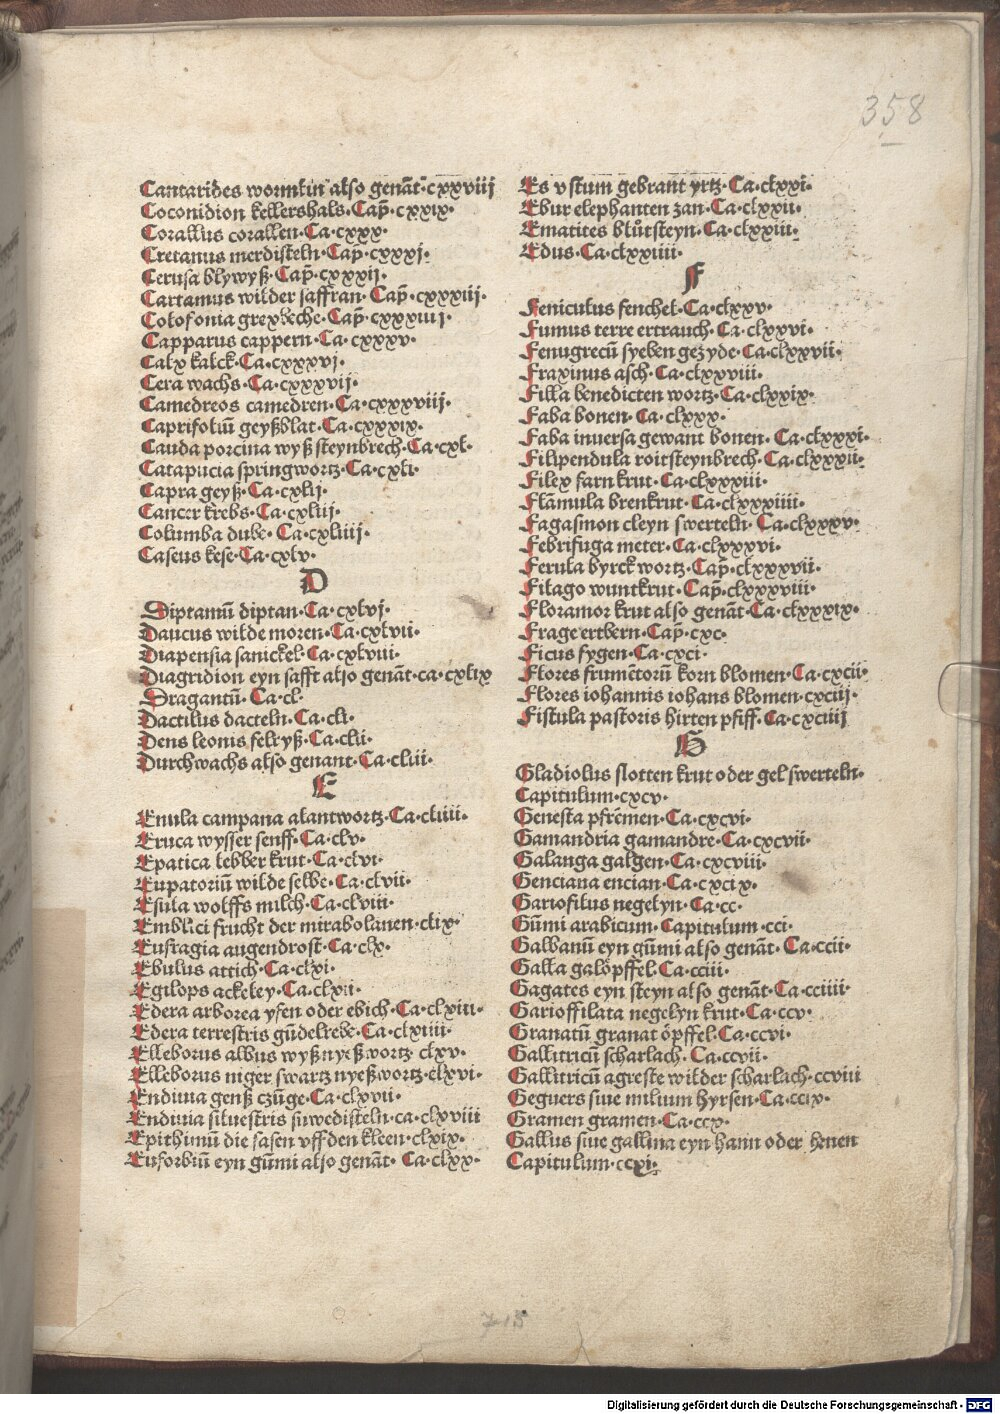 358
Cantarides wormlin also genāt·cxxviij
Coconidion kellershals·Cap̄·cxxix·
Corallus corallen·Ca·cxxx·
Cretanus merdisteln·Cap̄·cxxxj·
Cerusa blywyß·Cap̄·cxxxij·
Cartamus wilder saffran·Cap̄·cxxxiij·
Colofonia grexbeche·Cap̄·cxxxiiij·
Capparus cappern·Ca·cxxxv·
Calx kalck·Ca·cxxxvj·
Cera wachs·Ca·cxxxvij·
Camedreos camedren·Ca·cxxxviij·
Caprifoliū geyßblat·Ca·cxxxix·
Cauda porcina wyß steynbrech·Ca·cxl·
Catapucia springwortz·Ca·cxli·
Capra geyß·Ca·cxlij·
Cancer krebs·Ca·cxliij·
Columba dube·Ca·cxliiij·
Caseus kese·Ca·cxlv·
D
Diptamū diptan·Ca·cxlvj·
Daucus wilde moren·Ca·cxlvii·
Diapensia sanickel·Ca·cxlviii·
Diagridion eyn safft also genāt·ca·cxlix
Dragantū·Ca·cl·
Dactilus dacteln·Ca·cli·
Dens leonis felryß·Ca·clii·
Durchwachs also genant·Ca·cliii·
E
Enula campana alantwortz·Ca·cliiii·
Eruca wysser senff·Ca·clv·
Epatica lebber krut·Ca·clvi·
Eupatoriū wilde selbe·Ca·clvii·
Esula wolffs milch·Ca·clviii·
Emblici frucht der mirabolanen·clix·
Eufragia augendrost·Ca·clx·
Ebulus attich·Ca·clxi·
Egilops ackeley·Ca·clxii·
Edera arborea yfen oder ebich·Ca·clxiii·
Edera terrestris gūdelrebe·Ca·clxiiii·
Elleborus albus wyß nyeßwortz·clxv·
Elleborus niger swartz nyeßwortz·clxvi·
Endiuia genß czūge·Ca·clxvii·
Endiuia siluestris suwedisteln·ca·clxviii
Epithimū die fasen vff den kleen·clxix·
Euforbiū eyn gūmi also genāt·Ca·clxx·
Es vstum gebrant yrtz·Ca·clxxi·
Ebur elephanten zan·Ca·clxxii·
Ematites blůtsteyn·Ca·clxxiii·
Edus·Ca·clxxiiii·
F
Feniculus fenchel·Ca·clxxv·
Fumus terre ertrauch·Ca·clxxvi·
Fenugrecū syeben gezyde·Ca·clxxvii·
Fraxinus asch·Ca·clxxviii·
Filla benedicten wortz·Ca·clxxix·
Faba bonen·Ca·clxxx·
Faba inuersa gewant bonen·Ca·clxxxi·
Filipendula roitsteynbrech·Ca·clxxxii·
Filex farn krut·Ca·clxxxiii·
Flāmula brenkrut·Ca·clxxxiiii·
Fagasmon cleyn swerteln·Ca·clxxxv·
Febrifuga meter·Ca·clxxxvi·
Ferula byrckwortz·Cap̄·clxxxvii·
Filago wuntkrut·Cap̄·clxxxviii·
Floramor krut also genāt·Ca·clxxxix·
Frage ertbern·Cap̄·cxc·
Ficus fygen·Ca·cxci·
Flores frumētorū korn blomen·Ca·cxcii·
Flores iohannis iohans blomen·cxciij·
Fistula pastoris hirten pfiff·Ca·cxciiij
G
Gladiolus slotten krut oder gel swerteln·
Capitulum·cxcv·
Genesta pfrēmen·Ca·cxcvi·
Gamandria gamandre·Ca·cxcvii·
Galanga galgen·Ca·cxcviii·
Genciana encian·Ca·cxcix·
Gariofilus negelyn·Ca·cc·
Gūmi arabicum·Capitulum·cci·
Galbanū eyn gūmi also genāt·Ca·ccii·
Galla galöpffel·Ca·cciii·
Gagates eyn steyn also genāt·Ca·cciiii·
Garioffilata negelyn krut·Ca·ccv·
Granatū granat öpffel·Ca·ccvi·
Gallitricū scharlach·Ca·ccvii·
Gallitricū agreste wilder scharlach·ccviii
Geguers siue milium hyrsen·Ca·ccix·
Gramen gramen·Ca·ccx·
Gallus siue gallina eyn hann oder henen
Capitulum·ccxi·
Digitalisierung gefördert durch die Deutsche Forschungsgemeinschaft - DFG